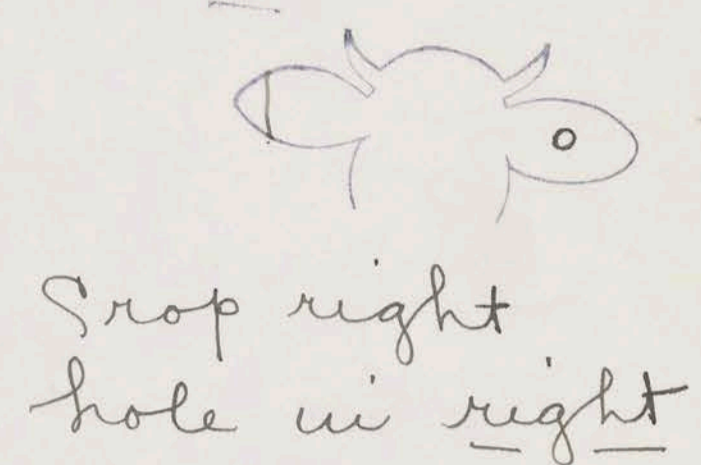 Crop right
hole in right